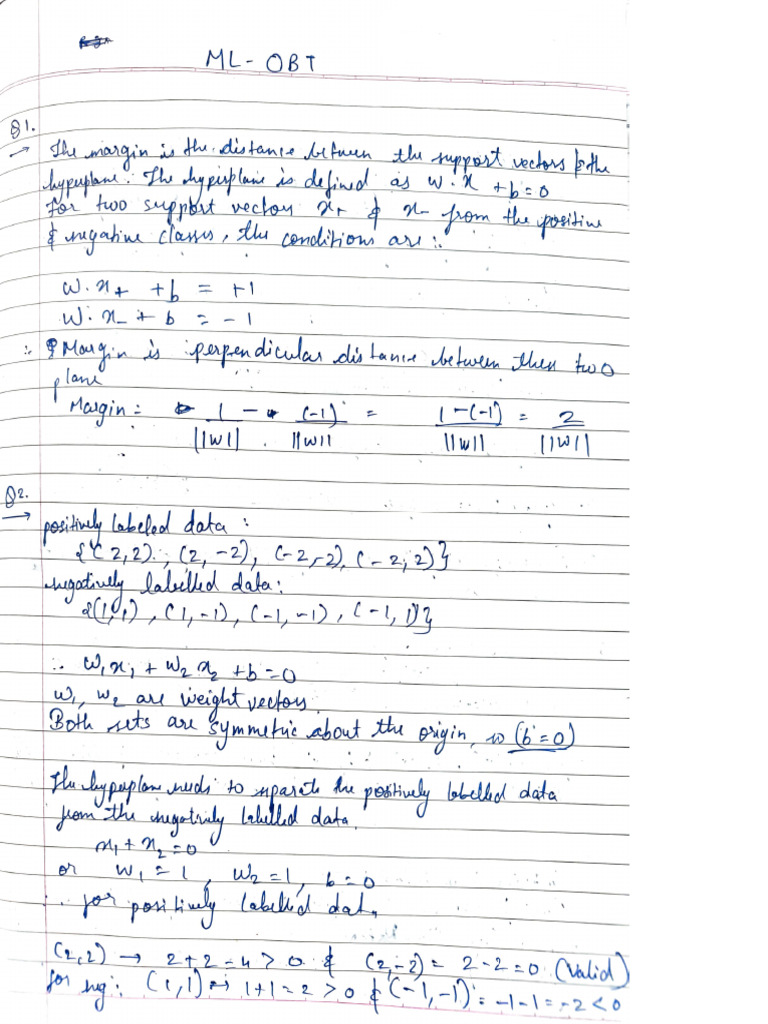 ML - OBT
Q1.
→ The margin is the distance between the support vectors & the
hyperplane. The hyperplane is defined as w.x + b = 0
For two support vectors x+ & x- from the positive
& negative classes, the conditions are :.
w.x+ + b = +1
w.x- + b = -1
∴ Margin is perpendicular distance between then two
plane
Margin = 1/||w|| - (-1)/||w|| = 1-(-1)/||w|| = 2/||w||
Q2.
→ positively labeled data :
{(2,2), (2,-2), (-2,-2), (-2,2)}
negatively labelled data:
{(1,1), (1,-1), (-1,-1), (-1,1)}
∴ w1x1 + w2x2 + b = 0
w1, w2 are weight vectors.
Both sets are symmetric about the origin, so (b = 0)
The hyperplane needs to separate the positively labelled data
from the negatively labelled data.
x1 + x2 = 0
or w1 = 1, w2 = 1, b = 0
∴ for positively labelled data,
(2,2) → 2+2 = 4 > 0 & (2,-2) = 2-2 = 0 (Valid)
for neg: (1,1) → 1+1 = 2 > 0 & (-1,-1) = -1-1 = -2 < 0